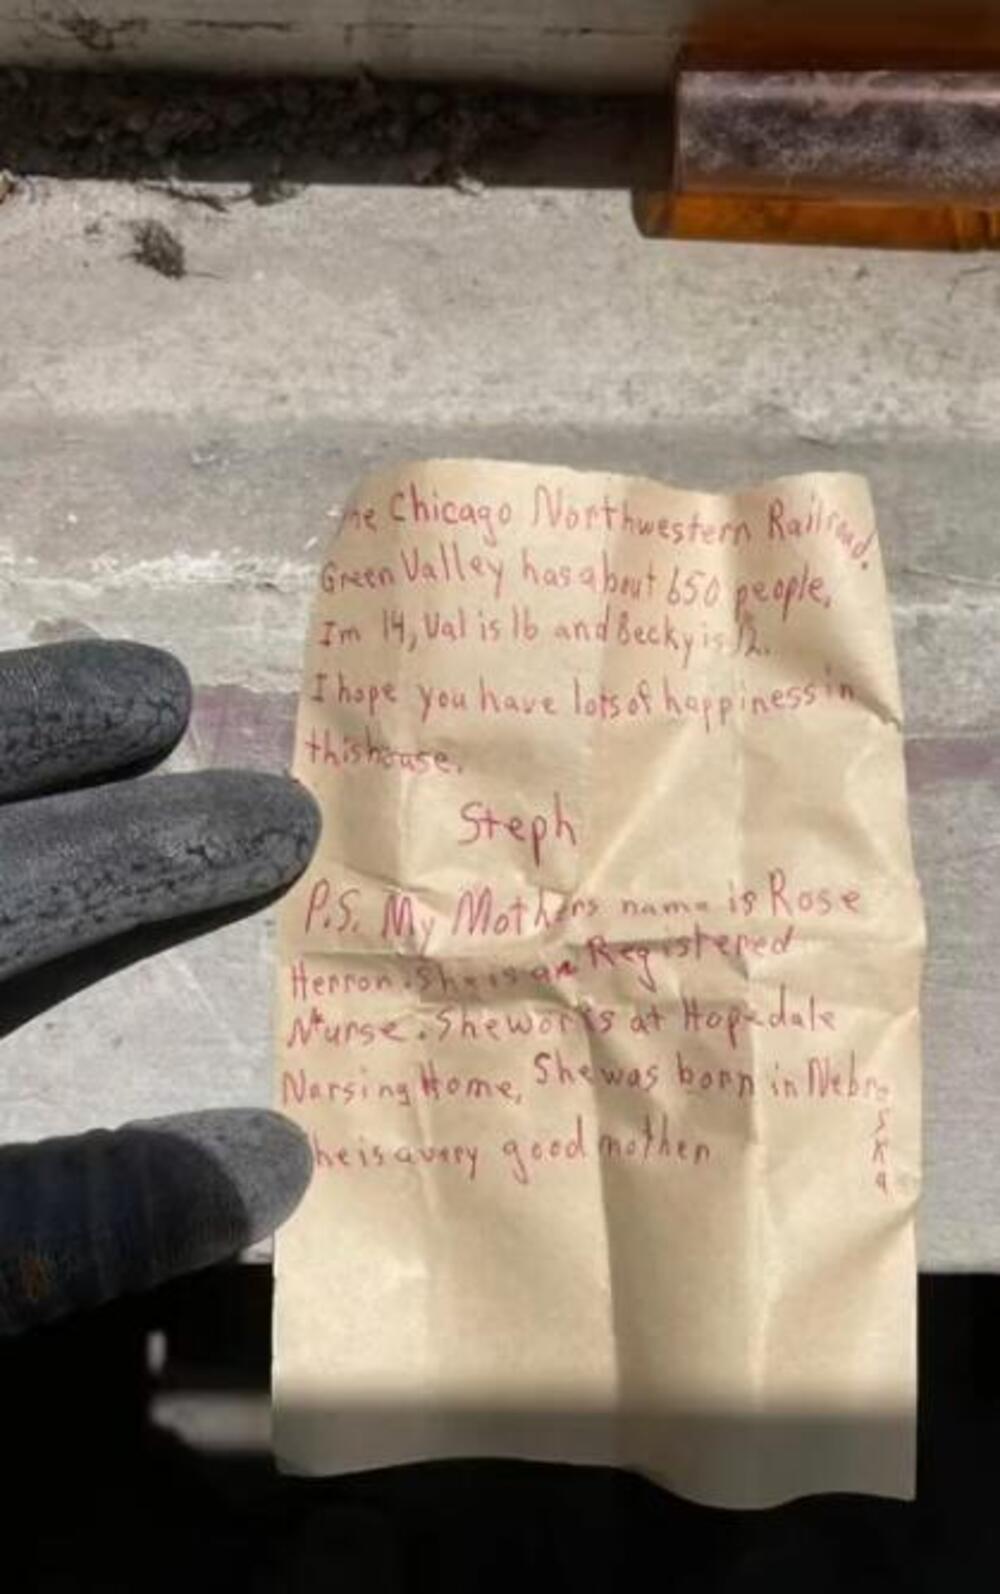 he Chicago Northwestern Railroad.
Green Valley has about 650 people.
Im 14, Val is 16 and Becky is 12.
I hope you have lots of happiness in
this house.
Steph
P.S. My Mothers name is Rose
Herron. She is an Registered
Nurse. She works at Hopedale
Nursing Home, She was born in Nebraska
he is a very good mother